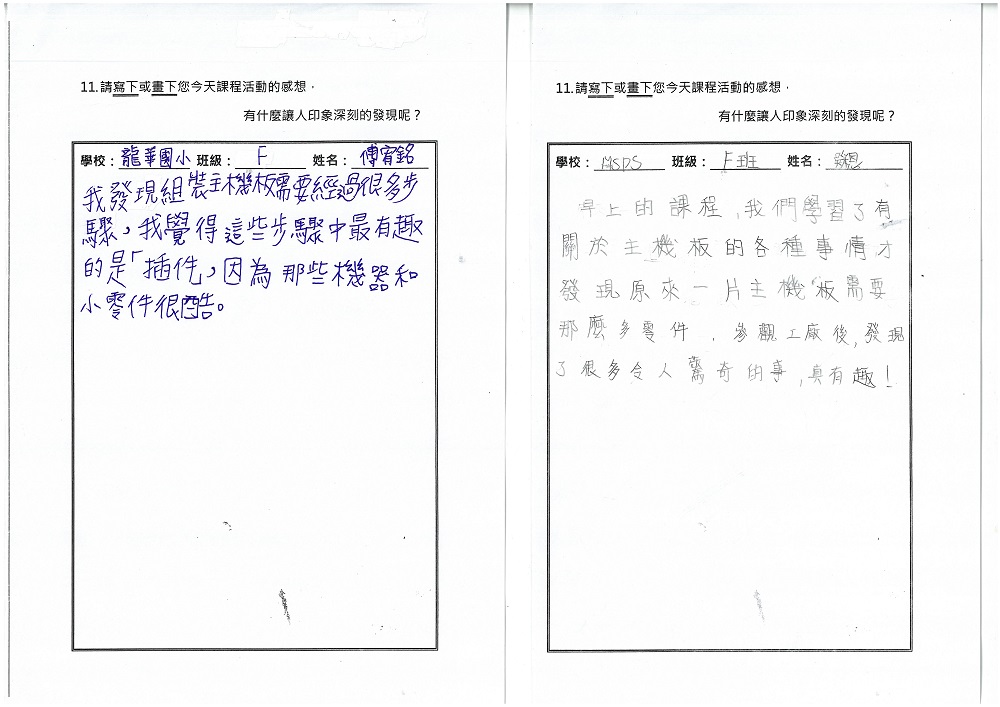 11.請寫下或畫下您今天課程活動的感想，
有什麼讓人印象深刻的發現呢？
學校：龍華國小 班級：F 姓名：傅宥銘
我發現組裝主機板需要經過很多步
驟，我覺得這些步驟中最有趣
的是「插件」，因為那些機器和
小零件很酷。
11.請寫下或畫下您今天課程活動的感想，
有什麼讓人印象深刻的發現呢？
學校：MSPS 班級：F班 姓名：
早上的課程，我們學習了有
關於主機板的各種事情才
發現原來一片主機板需要
那麼多零件．參觀工廠後，發現
了很多令人驚奇的事，真有趣！